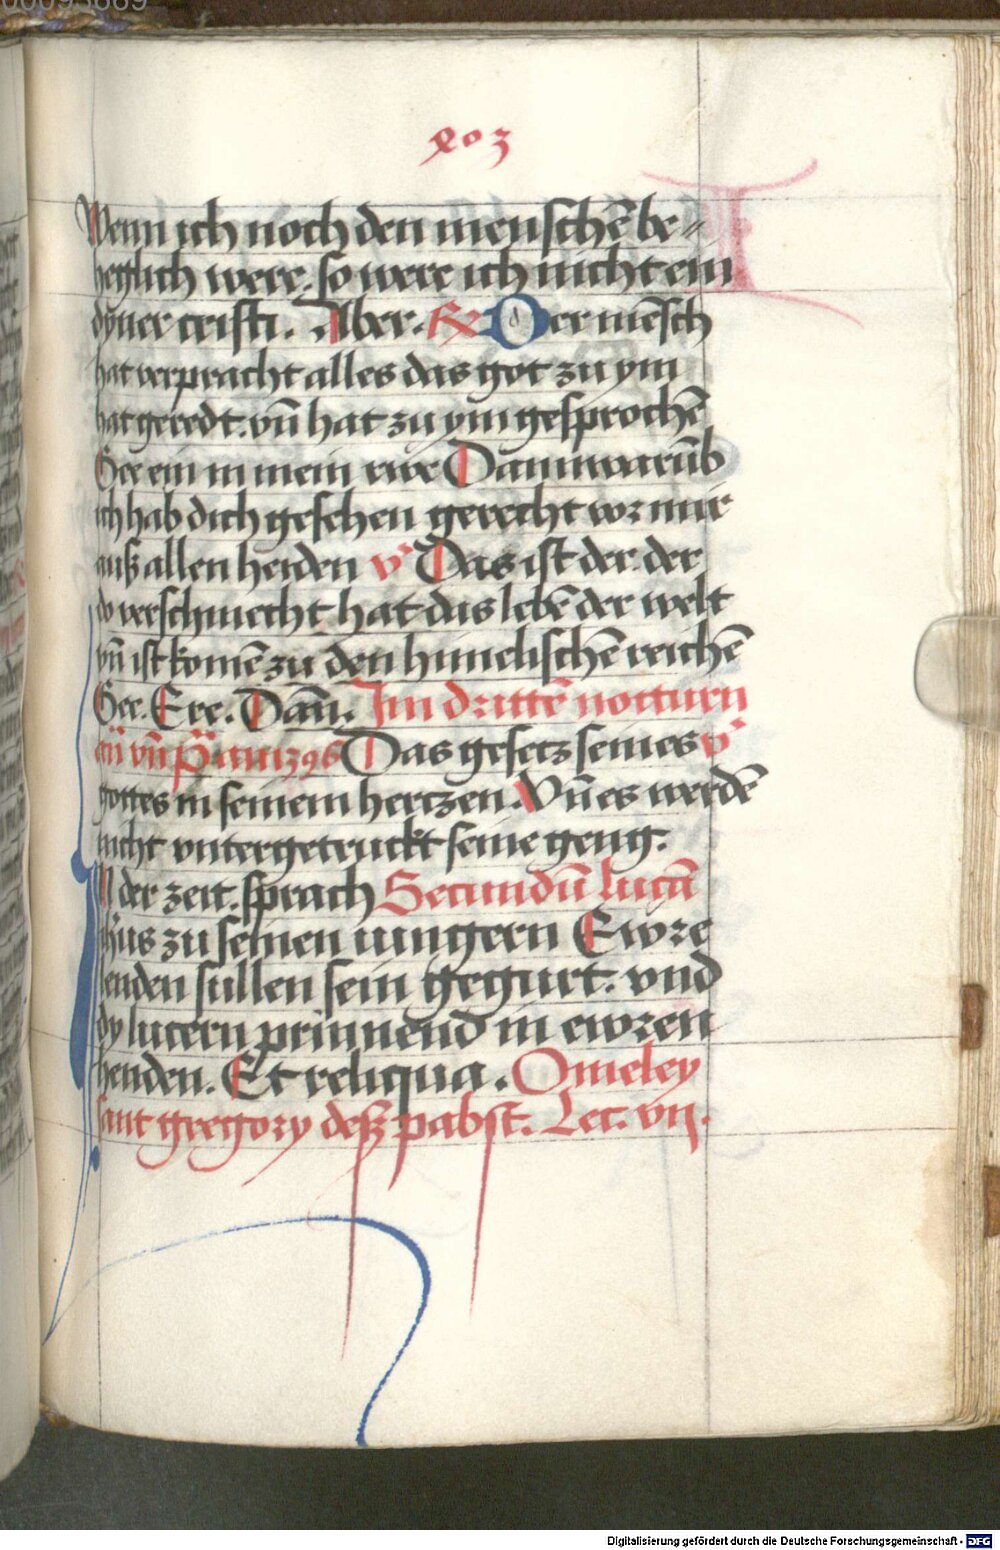 203
Wenn ich noch den menschē be⸗
heglich were. so were ich nicht ein
dyner cristi. Aber. Rx Der mēsch
hat verpracht alles das got zu ym
hat geredt. vn̄ hat zu ym gesprochē
Gee ein in mein rwe Dann warūb
ich hab dich gesehen gerecht vor mir
auß allen heiden v Das ist der. der
do verschmecht hat das lebē der welt
vn̄ ist komē zu den himelischē reichē
Gee. Ere. Dan̄. Im drittē notturn
an̄ vn̄ Das gesetz seines v
gottes in seinem hertzen. Vn̄ es werdē
nicht vntergetruckt seine geng.
IN der zeit. sprach Secundū lucā
ihūs zu seinen iungern Ewre
lenden sullen sein gegurt. vnd
dy lucern prinnend in ewren
henden. Et reliqua. Omeley
sant gregory deß pabst. Lec. vii.
Digitalisierung gefördert durch die Deutsche Forschungsgemeinschaft - DFG